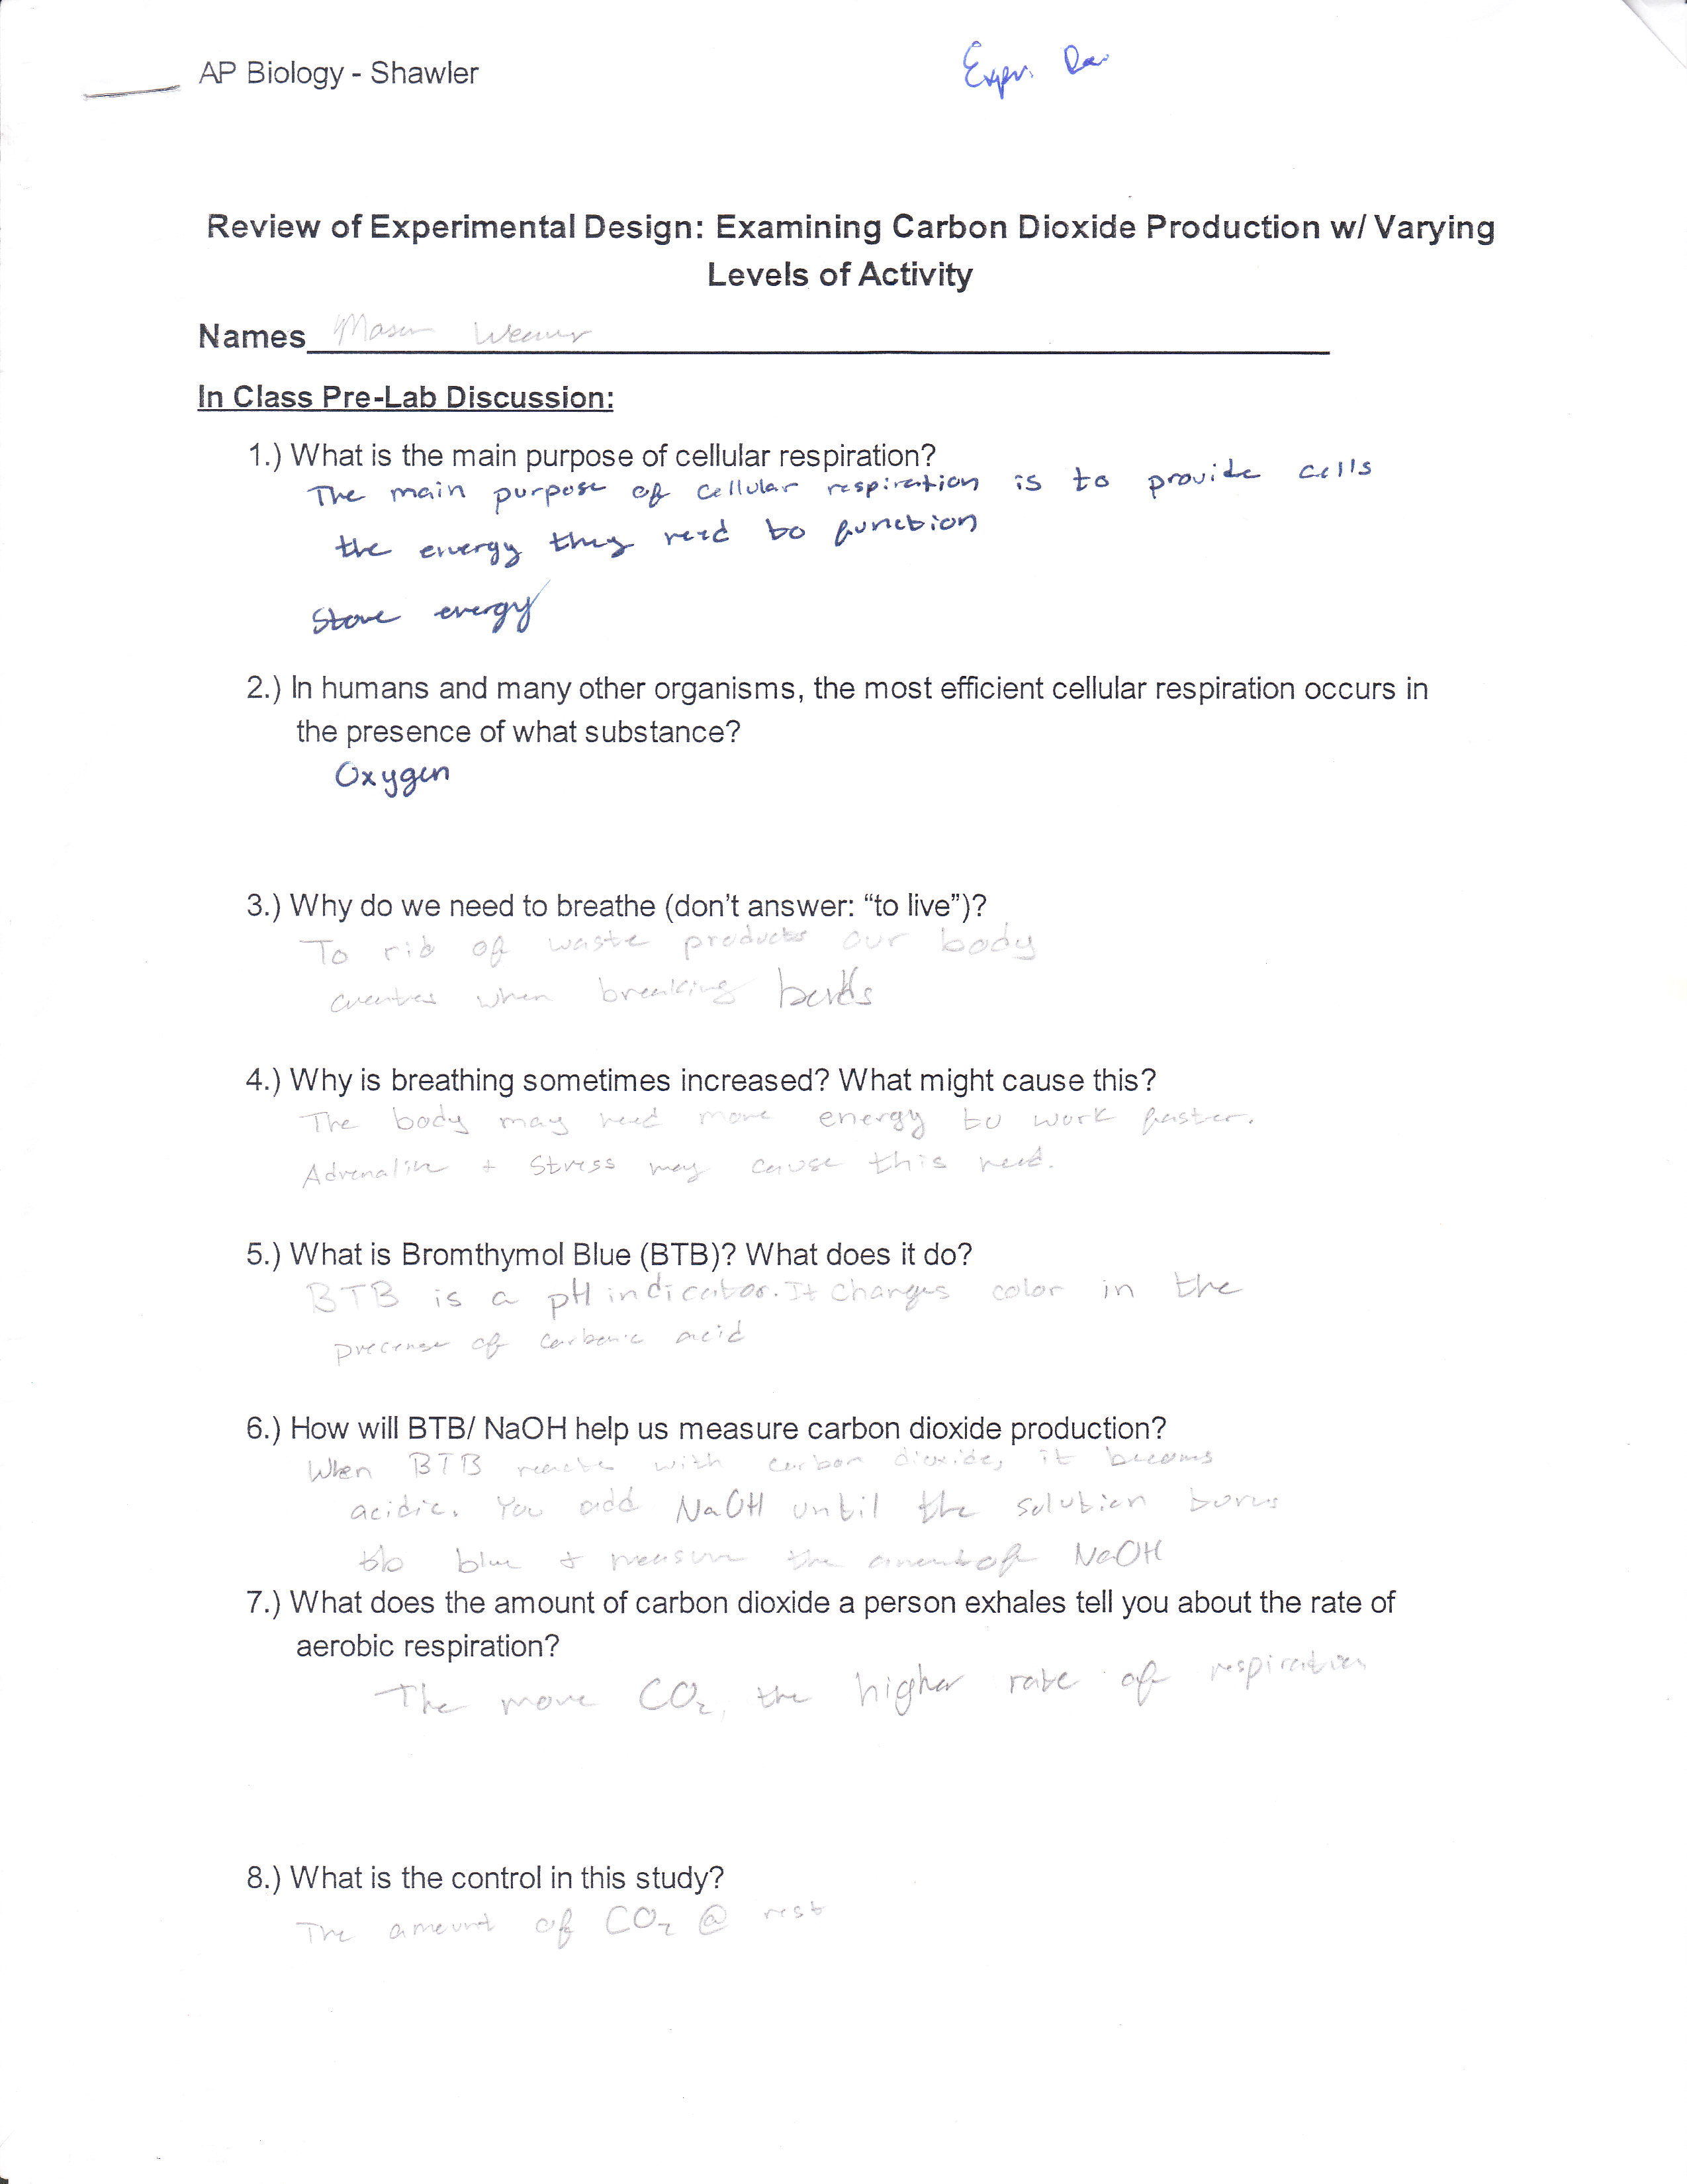 AP Biology - Shawler
Expr. Da
Review of Experimental Design: Examining Carbon Dioxide Production w/ Varying
Levels of Activity
Names Mason Weaver
In Class Pre-Lab Discussion:
1.) What is the main purpose of cellular respiration?
The main purpose of cellular respiration is to provide cells
the energy they need to function
Store energy
2.) In humans and many other organisms, the most efficient cellular respiration occurs in
the presence of what substance?
Oxygen
3.) Why do we need to breathe (don't answer: "to live")?
To rid of waste products our body
creates when breaking bonds
4.) Why is breathing sometimes increased? What might cause this?
The body may need more energy to work faster.
Adrenaline + stress may cause this need.
5.) What is Bromthymol Blue (BTB)? What does it do?
BTB is a pH indicator. It changes color in the
precense of carbonic acid
6.) How will BTB/ NaOH help us measure carbon dioxide production?
When BTB reacts with carbon dioxide, it becoms
acidic. You add NaOH until the solution
to blue + measure the amount of NaOH
7.) What does the amount of carbon dioxide a person exhales tell you about the rate of
aerobic respiration?
The more CO₂, the higher rate of respiration
8.) What is the control in this study?
The amount of CO₂ @ rest